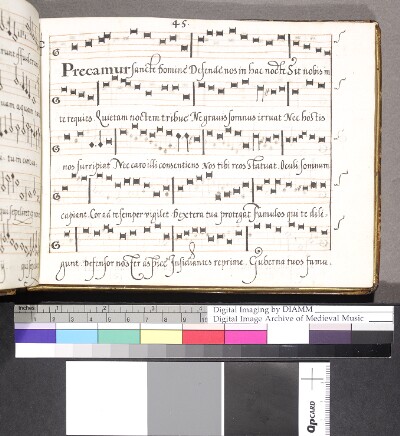 45.
Precamur sancte domine Defende nos in hac nocte Sit nobis in
te requies Quietam noctem tribue Ne gravis somnus irruat Nec hostis
nos surripiat Nec caro illi consentiens Nos tibi reos statuat. Oculi somnum
capient. Cor ad te semper vigilet. Dextera tua protegat Famulos qui te dili
gunt. Defensor noster aspice Insidiantes reprime. Guberna tuos famu.
inches
Digital Imaging by DIAMM
Digital Image Archive of Medieval Music
QPCARD